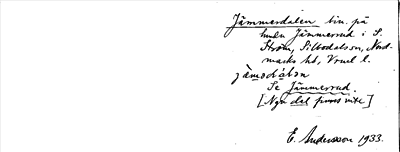 Jämmerdalen bin. på
hmn Jämmerrud i S.
Ström, Silbodals sn, Nord-
marks hd, Vrml l.
jàmədàln
Se Jämmerrud.
[Ngn dal finns inte]
E. Andersson 1933.